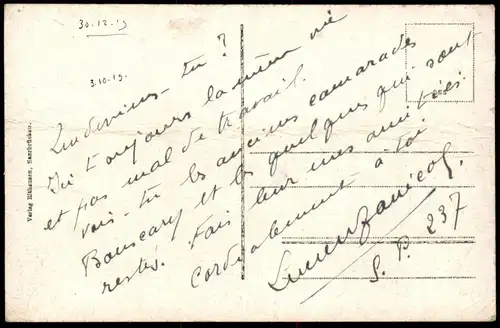 30.12.19
3.10.19.
Que deviens-tu ?
Ici toujours la même vie
et pas mal de travail.
Vois-tu les anciens camarades
Bouscary et les quelques qui sont
restés. Fais leur mes amitiés.
Cordialement à toi.
Lucien
S. P. 237
Verlag Elthausen, Saarbrücken.